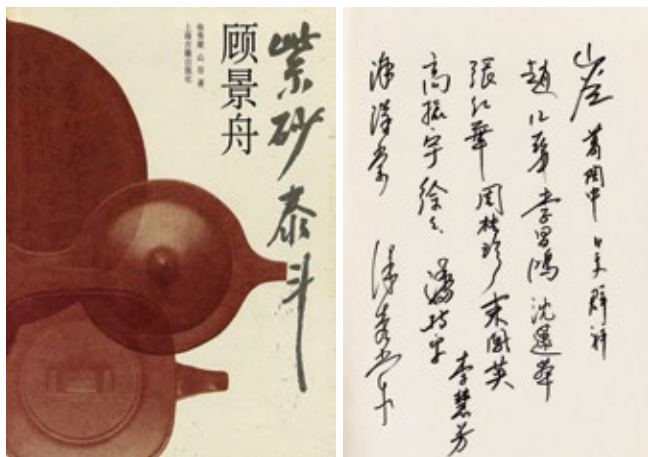 紫砂泰斗
顾景舟
徐秀棠 山谷 著
上海古籍出版社
山谷 葛陶中
赵江华 李昌鸿 沈蘧华
张红华 周桂珍 束凤英 李慧芳
高振宇 徐立 潘持平
徐汉棠 徐秀棠